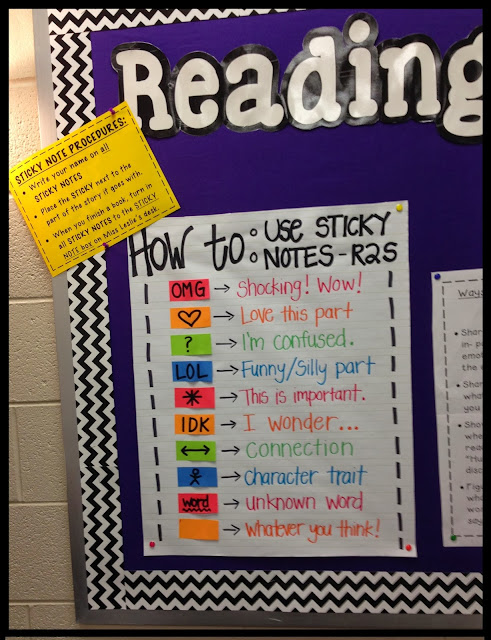 Reading
STICKY NOTE PROCEDURES:
• Write your name on all
STICKY NOTES
• Place the STICKY next to the
part of the story it goes with.
• When you finish a book, turn in
all STICKY NOTES to the STICKY
NOTE box on Miss Leslie's desk.
HOW to: USE STICKY
NOTES-R2S
OMG → Shocking! Wow!
♡ → Love this part
? → I'm confused.
LOL → Funny/Silly part
* → This is important.
IDK → I wonder...
↔ → Connection
→ Character trait
word → unknown word
→ Whatever you think!
Ways
• Shar
in- p
emot
the
• Shar
what
you
• Sho
whe
read
"Hu
disc
• Fig
what
say